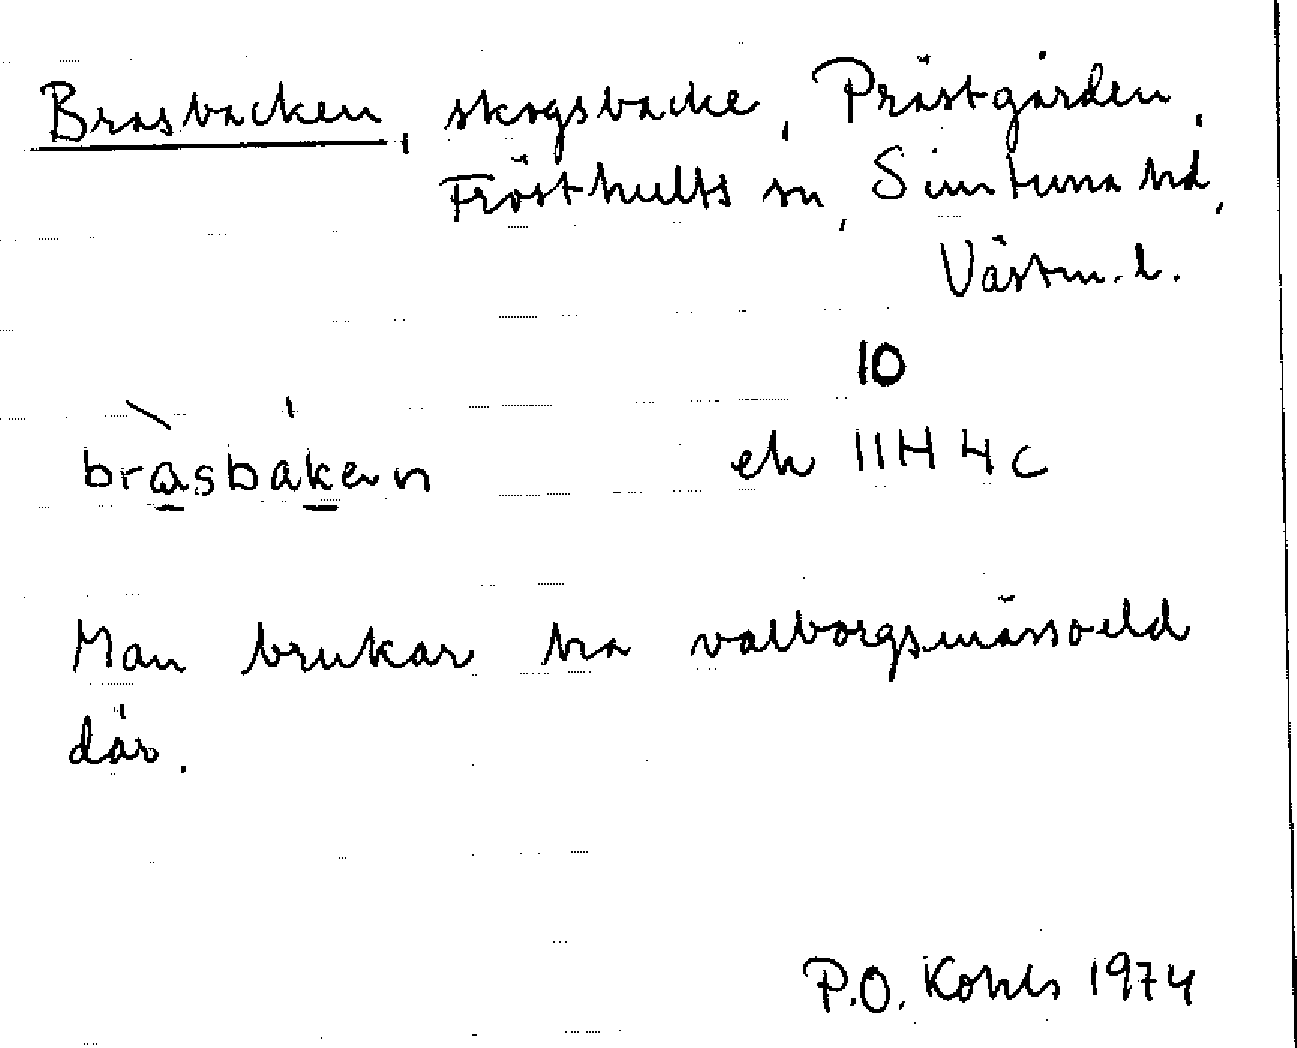 Brasbacken, skogsbacke, Prästgården,
Frösthults sn, Simtuna hd,
Västm. l.
10
bràsbakән ek 11H 4c
Man brukar ha valborgsmässoeld
där.
P.O. Kohls 1974